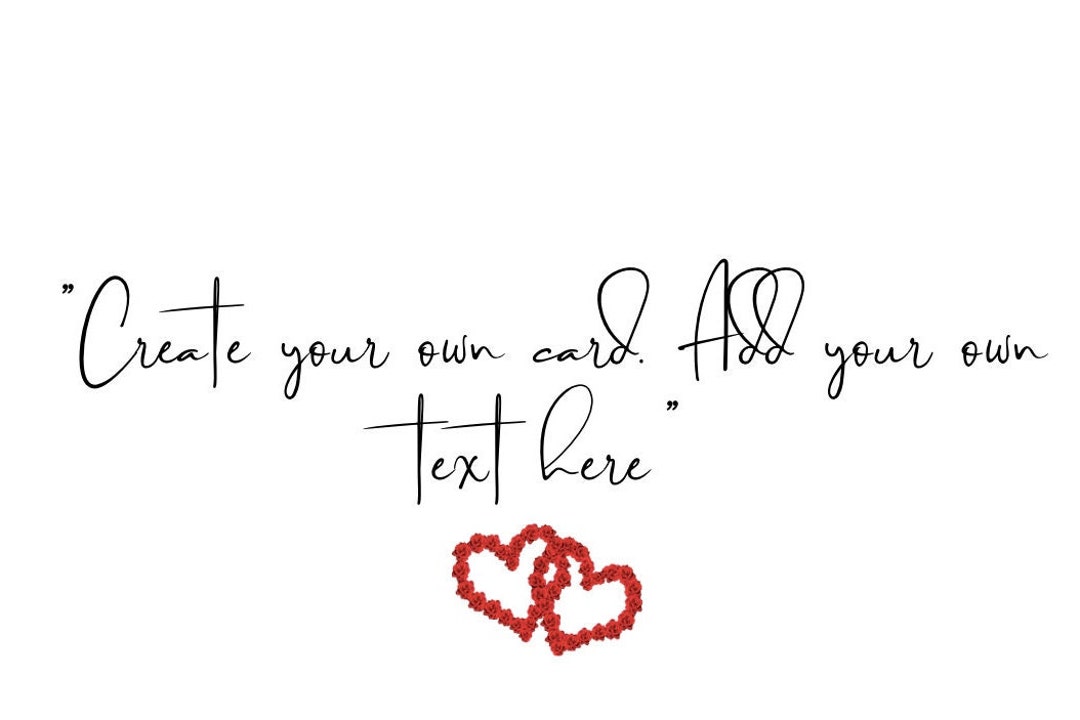 "Create your own card. Add your own
text here"